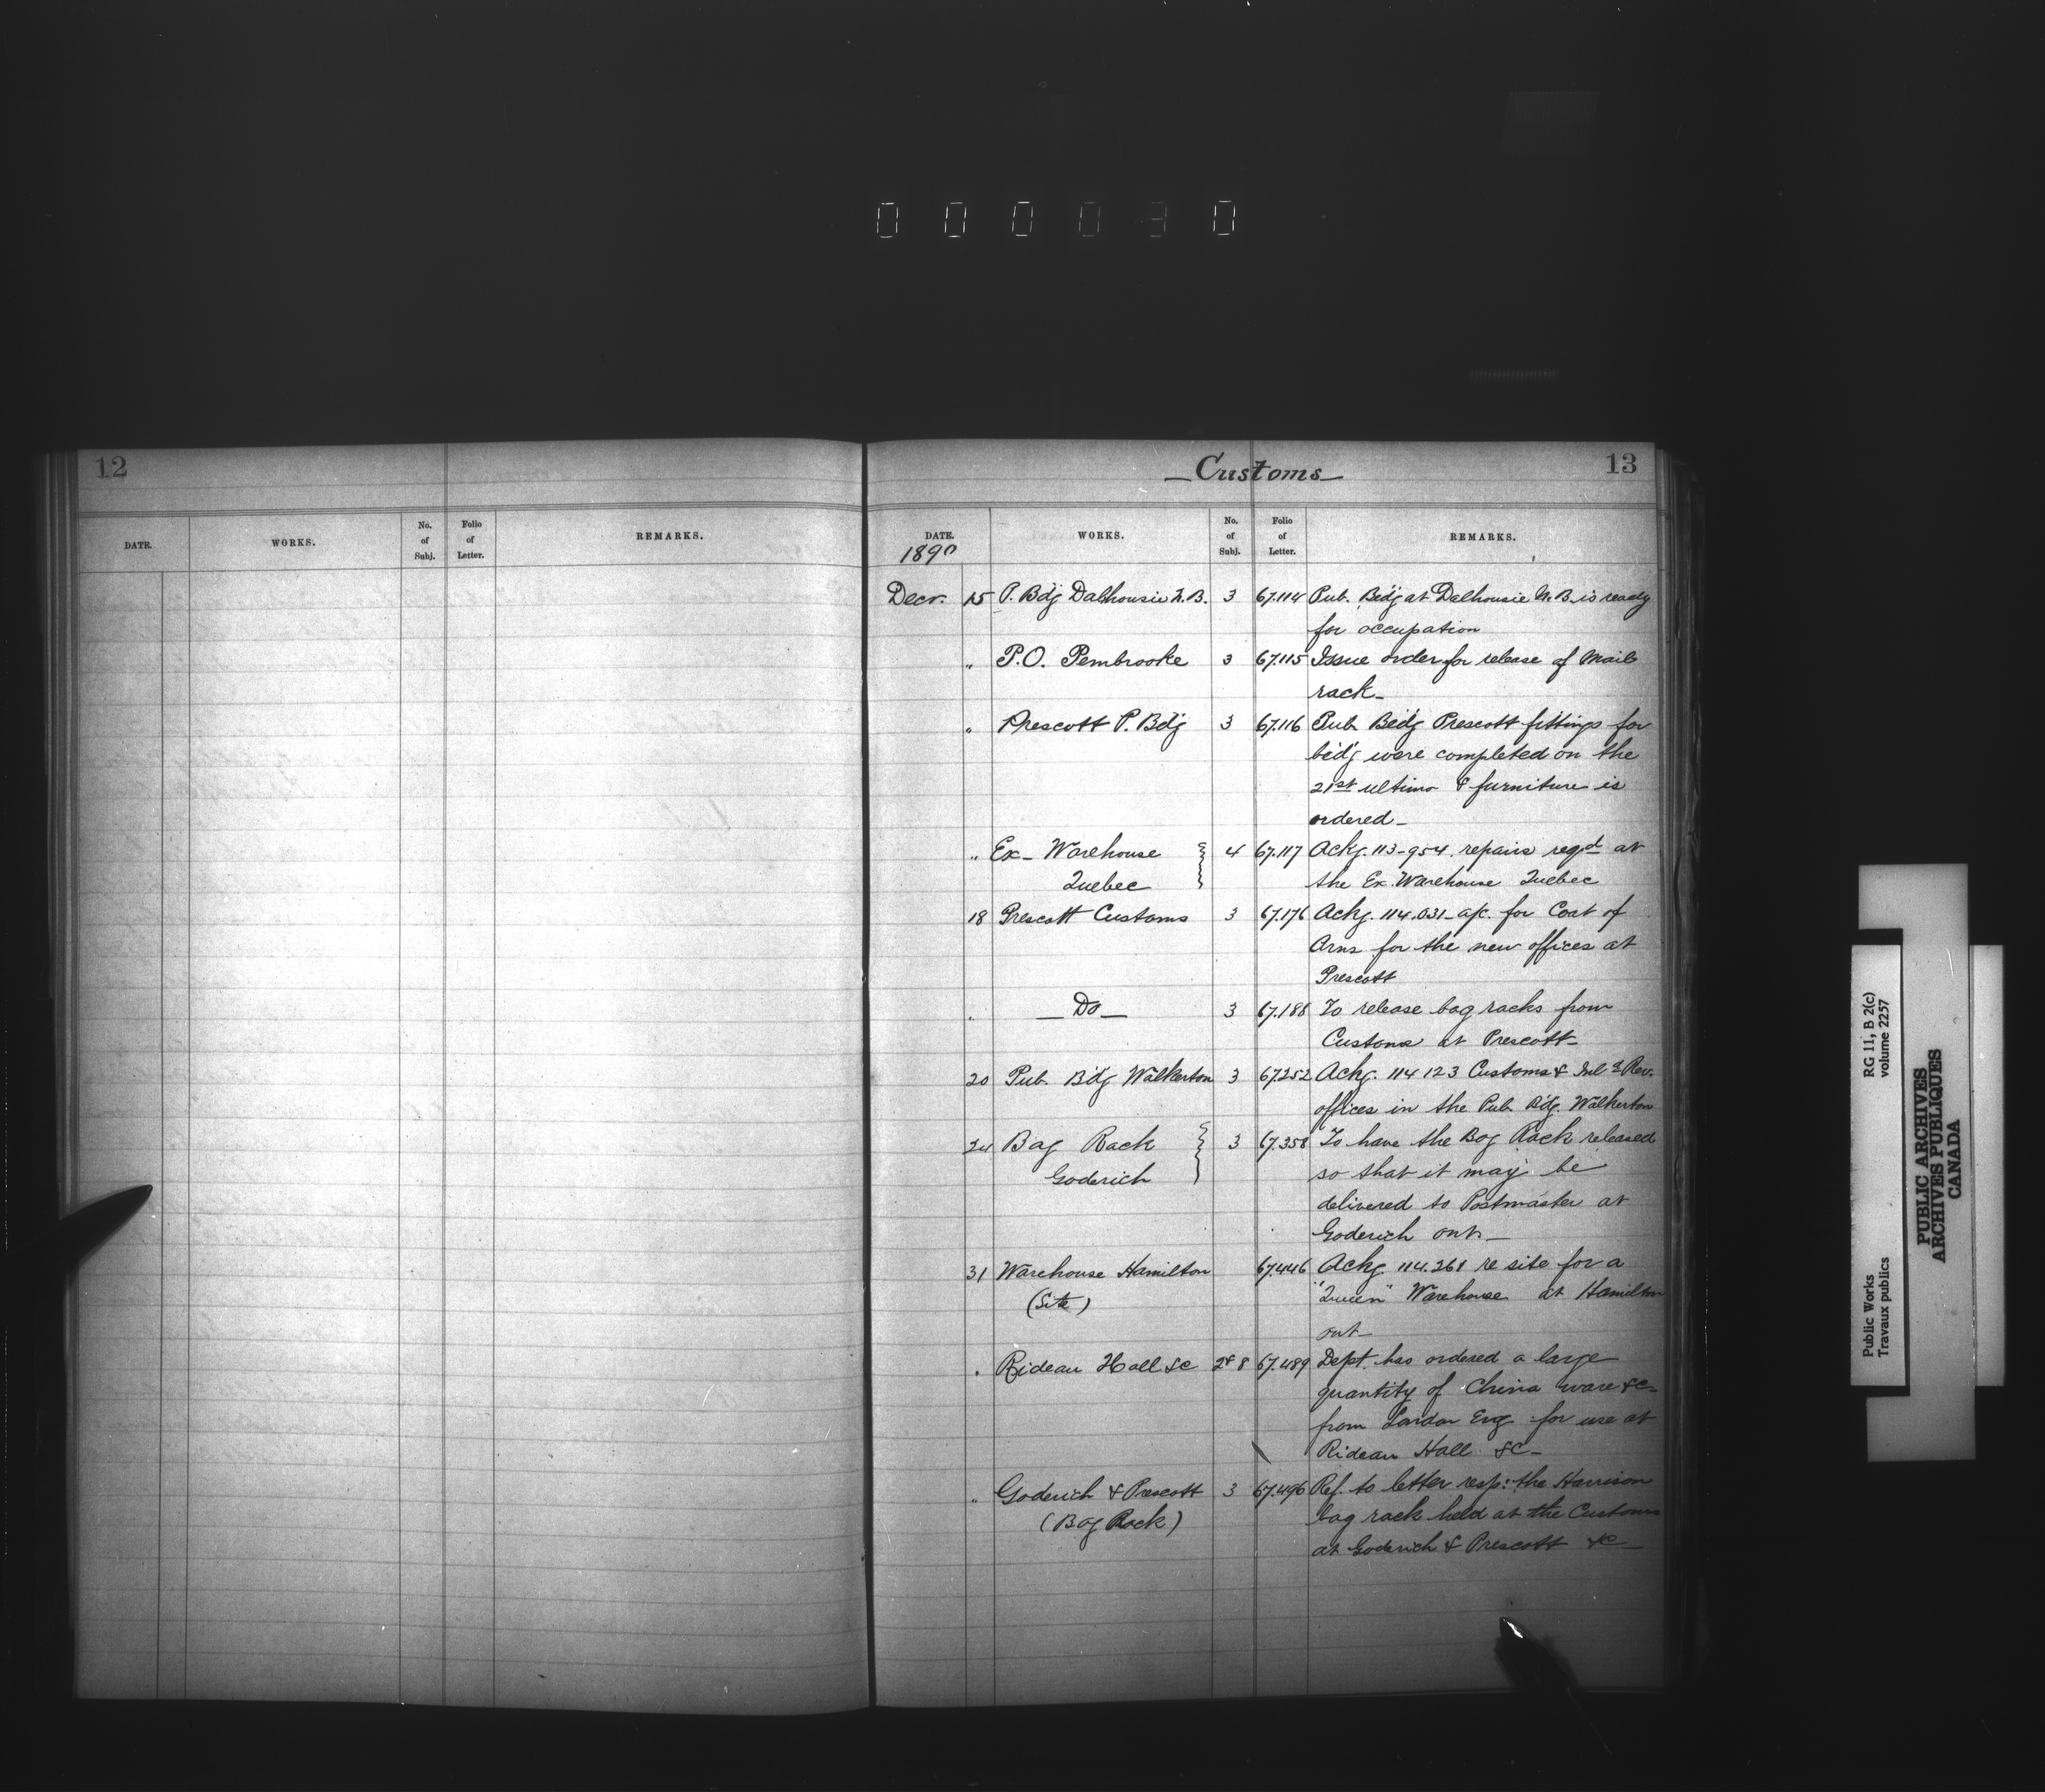 000030
12
DATE. WORKS. No. of Subj. Folio of Letter. REMARKS.
Customs
13
DATE. WORKS. No. of Subj. Folio of Letter. REMARKS.
1890
Decr. 15 P. Bdg Dalhousie N.B. 3 67.114 Pub. Bldg at Dalhousie N.B. is ready
for occupation
" P.O. Pembrooke 3 67.115 Issue order for release of Mail
rack_
" Prescott P. Bdg 3 67.116 Pub Bldg Prescott fittings for
bldg were completed on the
21st ultimo & furniture is
ordered_
" Ex_ Warehouse 4 67.117 Ackg. 113-954. repairs reqd at
Quebec the Ex. Warehouse Quebec
18 Prescott Customs 3 67.176 Ackg. 114.031_ a/c. for Coat of
Arms for the new offices at
Prescott
" _ Do _ 3 67.188 To release bag racks from
Customs at Prescott_
20 Pub. Bldg Walkerton 3 67252 Ackg. 114 123 Customs & Inld Rev.
offices in the Pub. Bldg. Walkerton
24 Bag Rack 3 67.358 To have the Bag Rack released
Goderich so that it may be
delivered to Postmaster at
Goderich Ont._
31 Warehouse Hamilton 67.446 Ackg. 114.261 re site for a
(Site) "Queen" Warehouse at Hamilton
Ont_
" Rideau Hall &c 2&8 67.489 Dept. has ordered a large
quantity of China ware &c_
from London Eng for use at
Rideau Hall &c_
" Goderich & Prescott 3 67.496 Ref. to letter resp: the Harrison
(Bag Rack) bag rack held at the Customs
at Goderich & Prescott &c_
Public Works RG 11, B 2(c)
Travaux publics volume 2257
PUBLIC ARCHIVES
ARCHIVES PUBLIQUES
CANADA